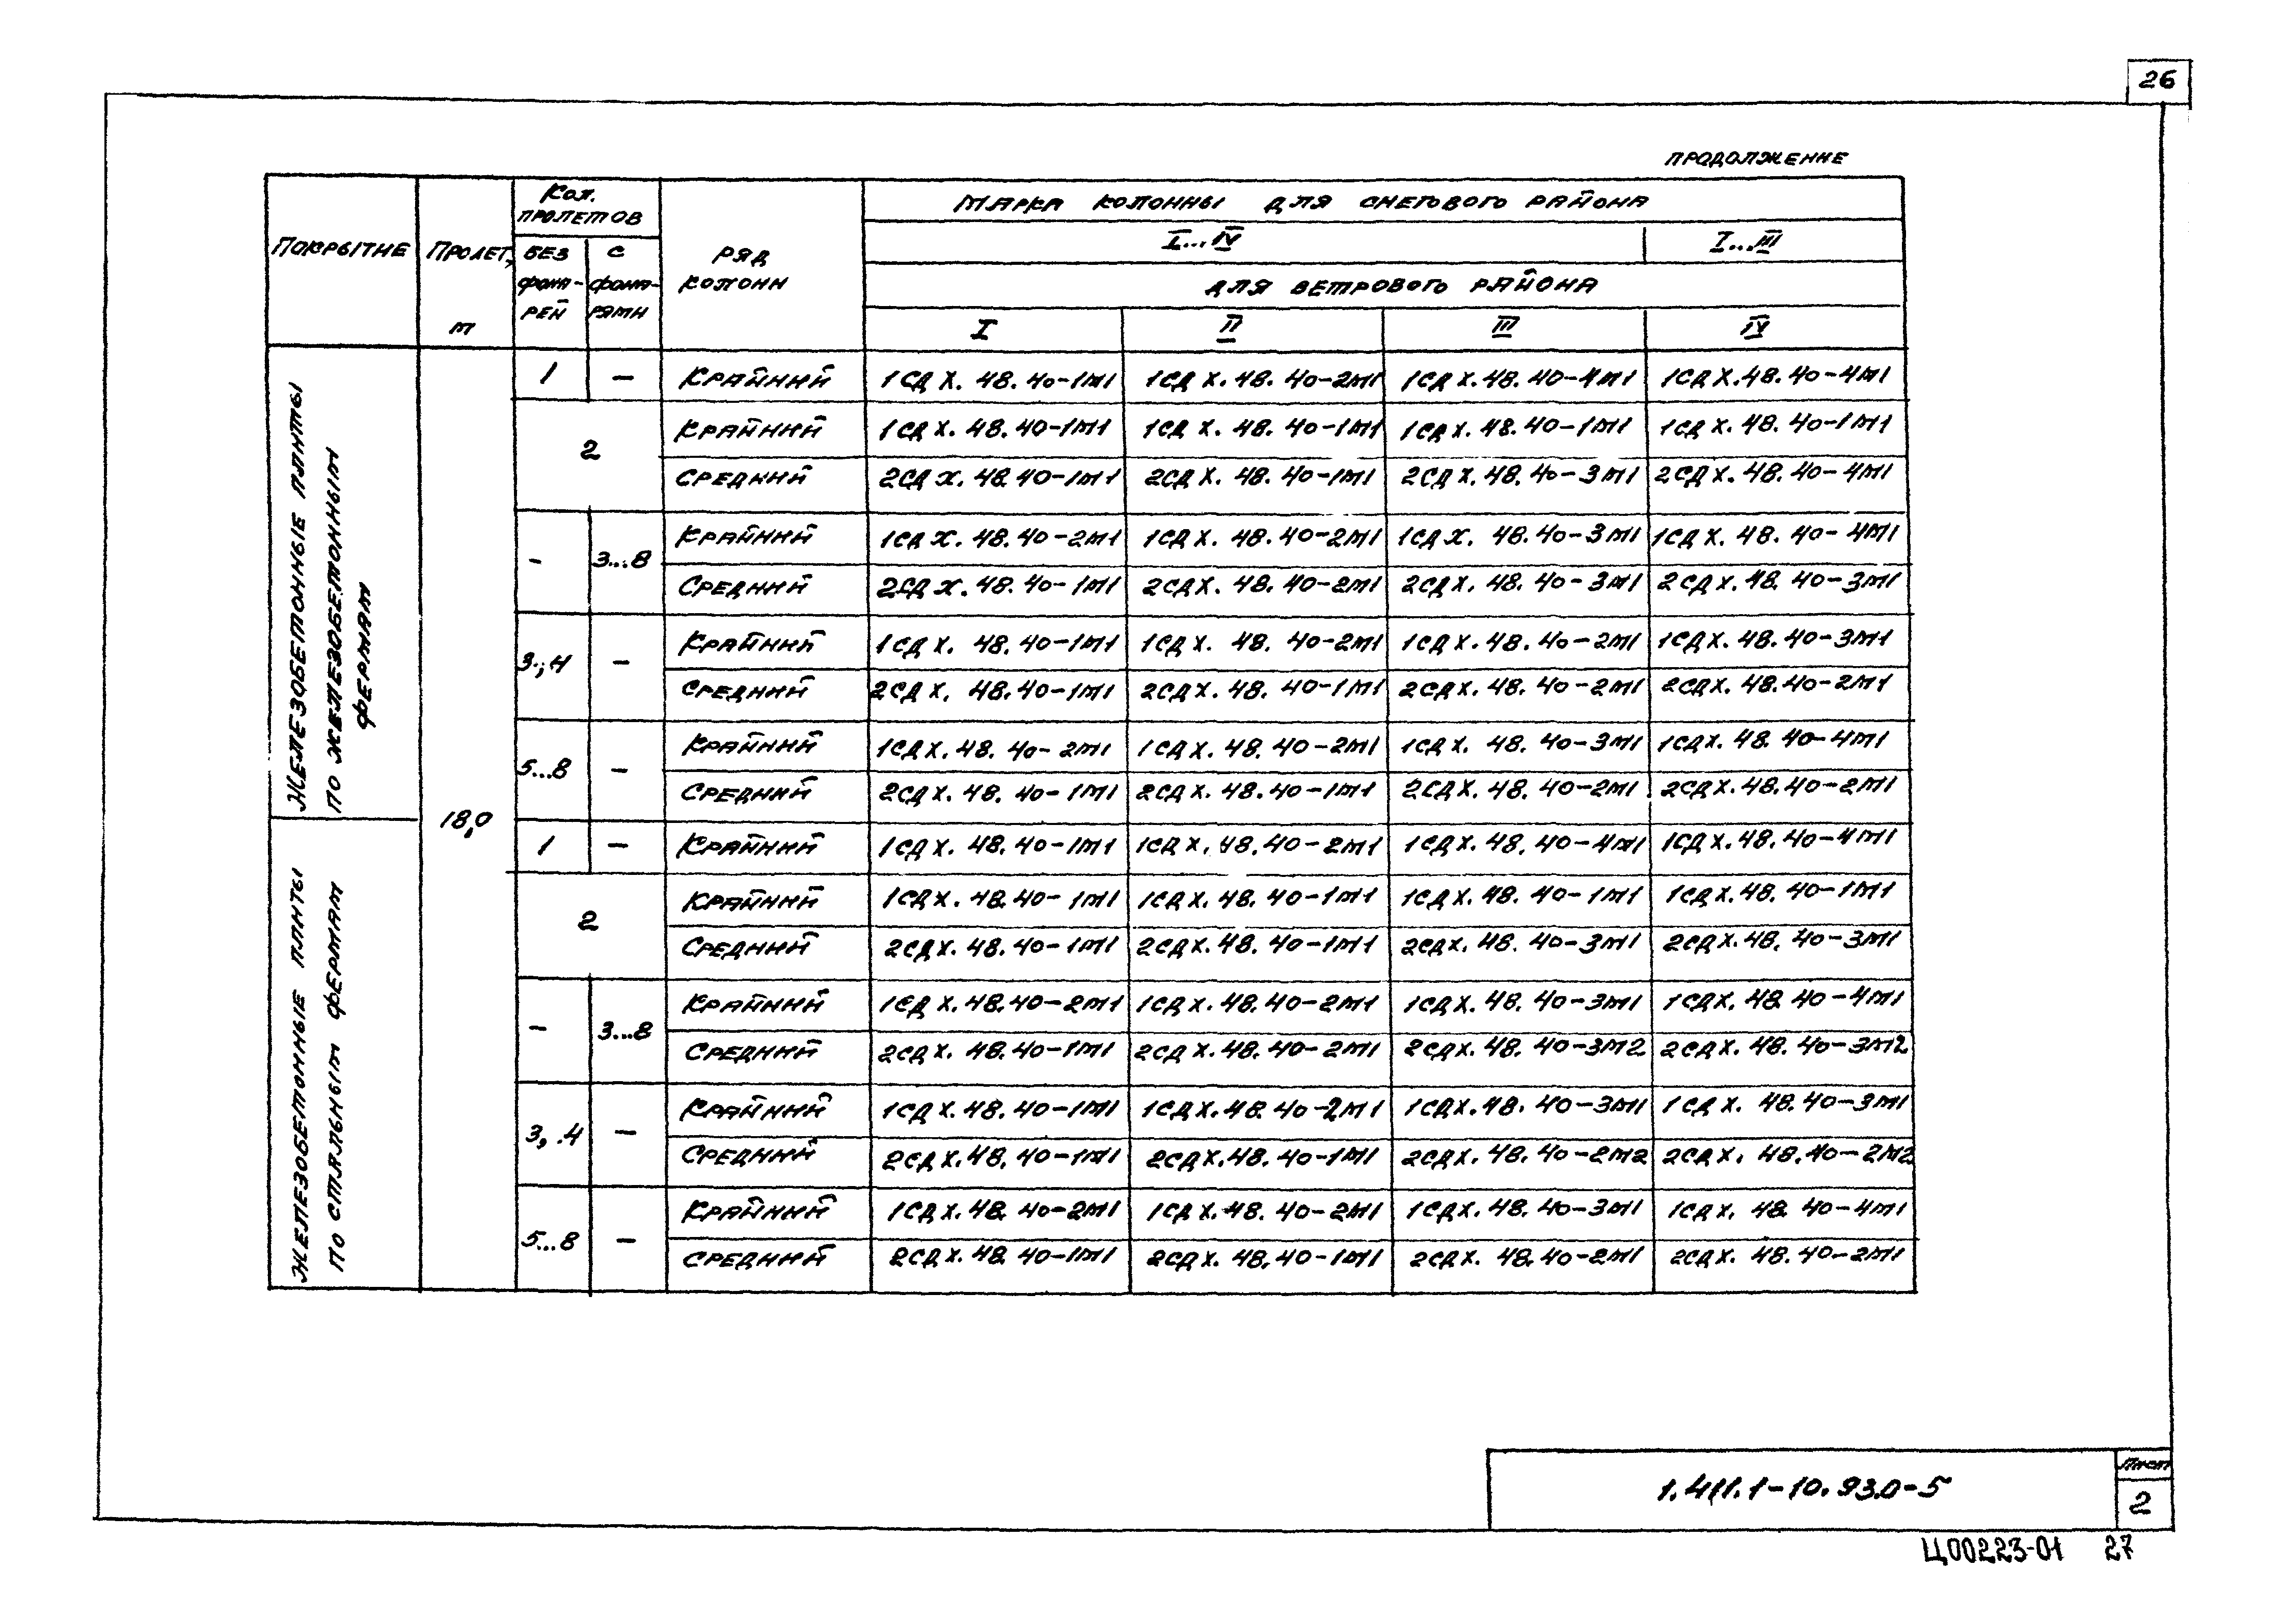 26
ПРОДОЛЖЕНИЕ
ПОКРЫТИЕ ПРОЛЕТ, м Кол. ПРОЛЕТОВ БЕЗ фона-РЕЙ С фона-РЯМИ РЯД КОЛОНН МАРКА КОЛОННЫ ДЛЯ СНЕГОВОГО РАЙОНА
I...IV I...III
ДЛЯ ВЕТРОВОГО РАЙОНА
I II III IV
ЖЕЛЕЗОБЕТОННЫЕ ПЛИТЫ
ПО ЖЕЛЕЗОБЕТОННЫМ
ФЕРМАМ
18,0
1 — КРАЙНИЙ 1СДХ.48.40-1М1 1СДХ.48.40-2М1 1СДХ.48.40-4М1 1СДХ.48.40-4М1
2 КРАЙНИЙ 1СДХ.48.40-1М1 1СДХ.48.40-1М1 1СДХ.48.40-1М1 1СДХ.48.40-1М1
СРЕДНИЙ 2СДХ.48.40-1М1 2СДХ.48.40-1М1 2СДХ.48.40-3М1 2СДХ.48.40-4М1
— 3...8 КРАЙНИЙ 1СДХ.48.40-2М1 1СДХ.48.40-2М1 1СДХ.48.40-3М1 1СДХ.48.40-4М1
СРЕДНИЙ 2СДХ.48.40-1М1 2СДХ.48.40-2М1 2СДХ.48.40-3М1 2СДХ.48.40-3М1
3,4 — КРАЙНИЙ 1СДХ.48.40-1М1 1СДХ.48.40-2М1 1СДХ.48.40-2М1 1СДХ.48.40-3М1
СРЕДНИЙ 2СДХ.48.40-1М1 2СДХ.48.40-1М1 2СДХ.48.40-2М1 2СДХ.48.40-2М1
5...8 — КРАЙНИЙ 1СДХ.48.40-2М1 1СДХ.48.40-2М1 1СДХ.48.40-3М1 1СДХ.48.40-4М1
СРЕДНИЙ 2СДХ.48.40-1М1 2СДХ.48.40-1М1 2СДХ.48.40-2М1 2СДХ.48.40-2М1
ЖЕЛЕЗОБЕТОННЫЕ ПЛИТЫ
ПО СТАЛЬНЫМ ФЕРМАМ
1 — КРАЙНИЙ 1СДХ.48.40-1М1 1СДХ.48.40-2М1 1СДХ.48.40-4М1 1СДХ.48.40-4М1
2 КРАЙНИЙ 1СДХ.48.40-1М1 1СДХ.48.40-1М1 1СДХ.48.40-1М1 1СДХ.48.40-1М1
СРЕДНИЙ 2СДХ.48.40-1М1 2СДХ.48.40-1М1 2СДХ.48.40-3М1 2СДХ.48.40-3М1
— 3...8 КРАЙНИЙ 1СДХ.48.40-2М1 1СДХ.48.40-2М1 1СДХ.48.40-3М1 1СДХ.48.40-4М1
СРЕДНИЙ 2СДХ.48.40-1М1 2СДХ.48.40-2М1 2СДХ.48.40-3М2 2СДХ.48.40-3М2
3,4 — КРАЙНИЙ 1СДХ.48.40-1М1 1СДХ.48.40-2М1 1СДХ.48.40-3М1 1СДХ.48.40-3М1
СРЕДНИЙ 2СДХ.48.40-1М1 2СДХ.48.40-1М1 2СДХ.48.40-2М2 2СДХ.48.40-2М2
5...8 — КРАЙНИЙ 1СДХ.48.40-2М1 1СДХ.48.40-2М1 1СДХ.48.40-3М1 1СДХ.48.40-4М1
СРЕДНИЙ 2СДХ.48.40-1М1 2СДХ.48.40-1М1 2СДХ.48.40-2М1 2СДХ.48.40-2М1
1.411.1-10.93.0-5
Лист
2
Ц00223-01 27